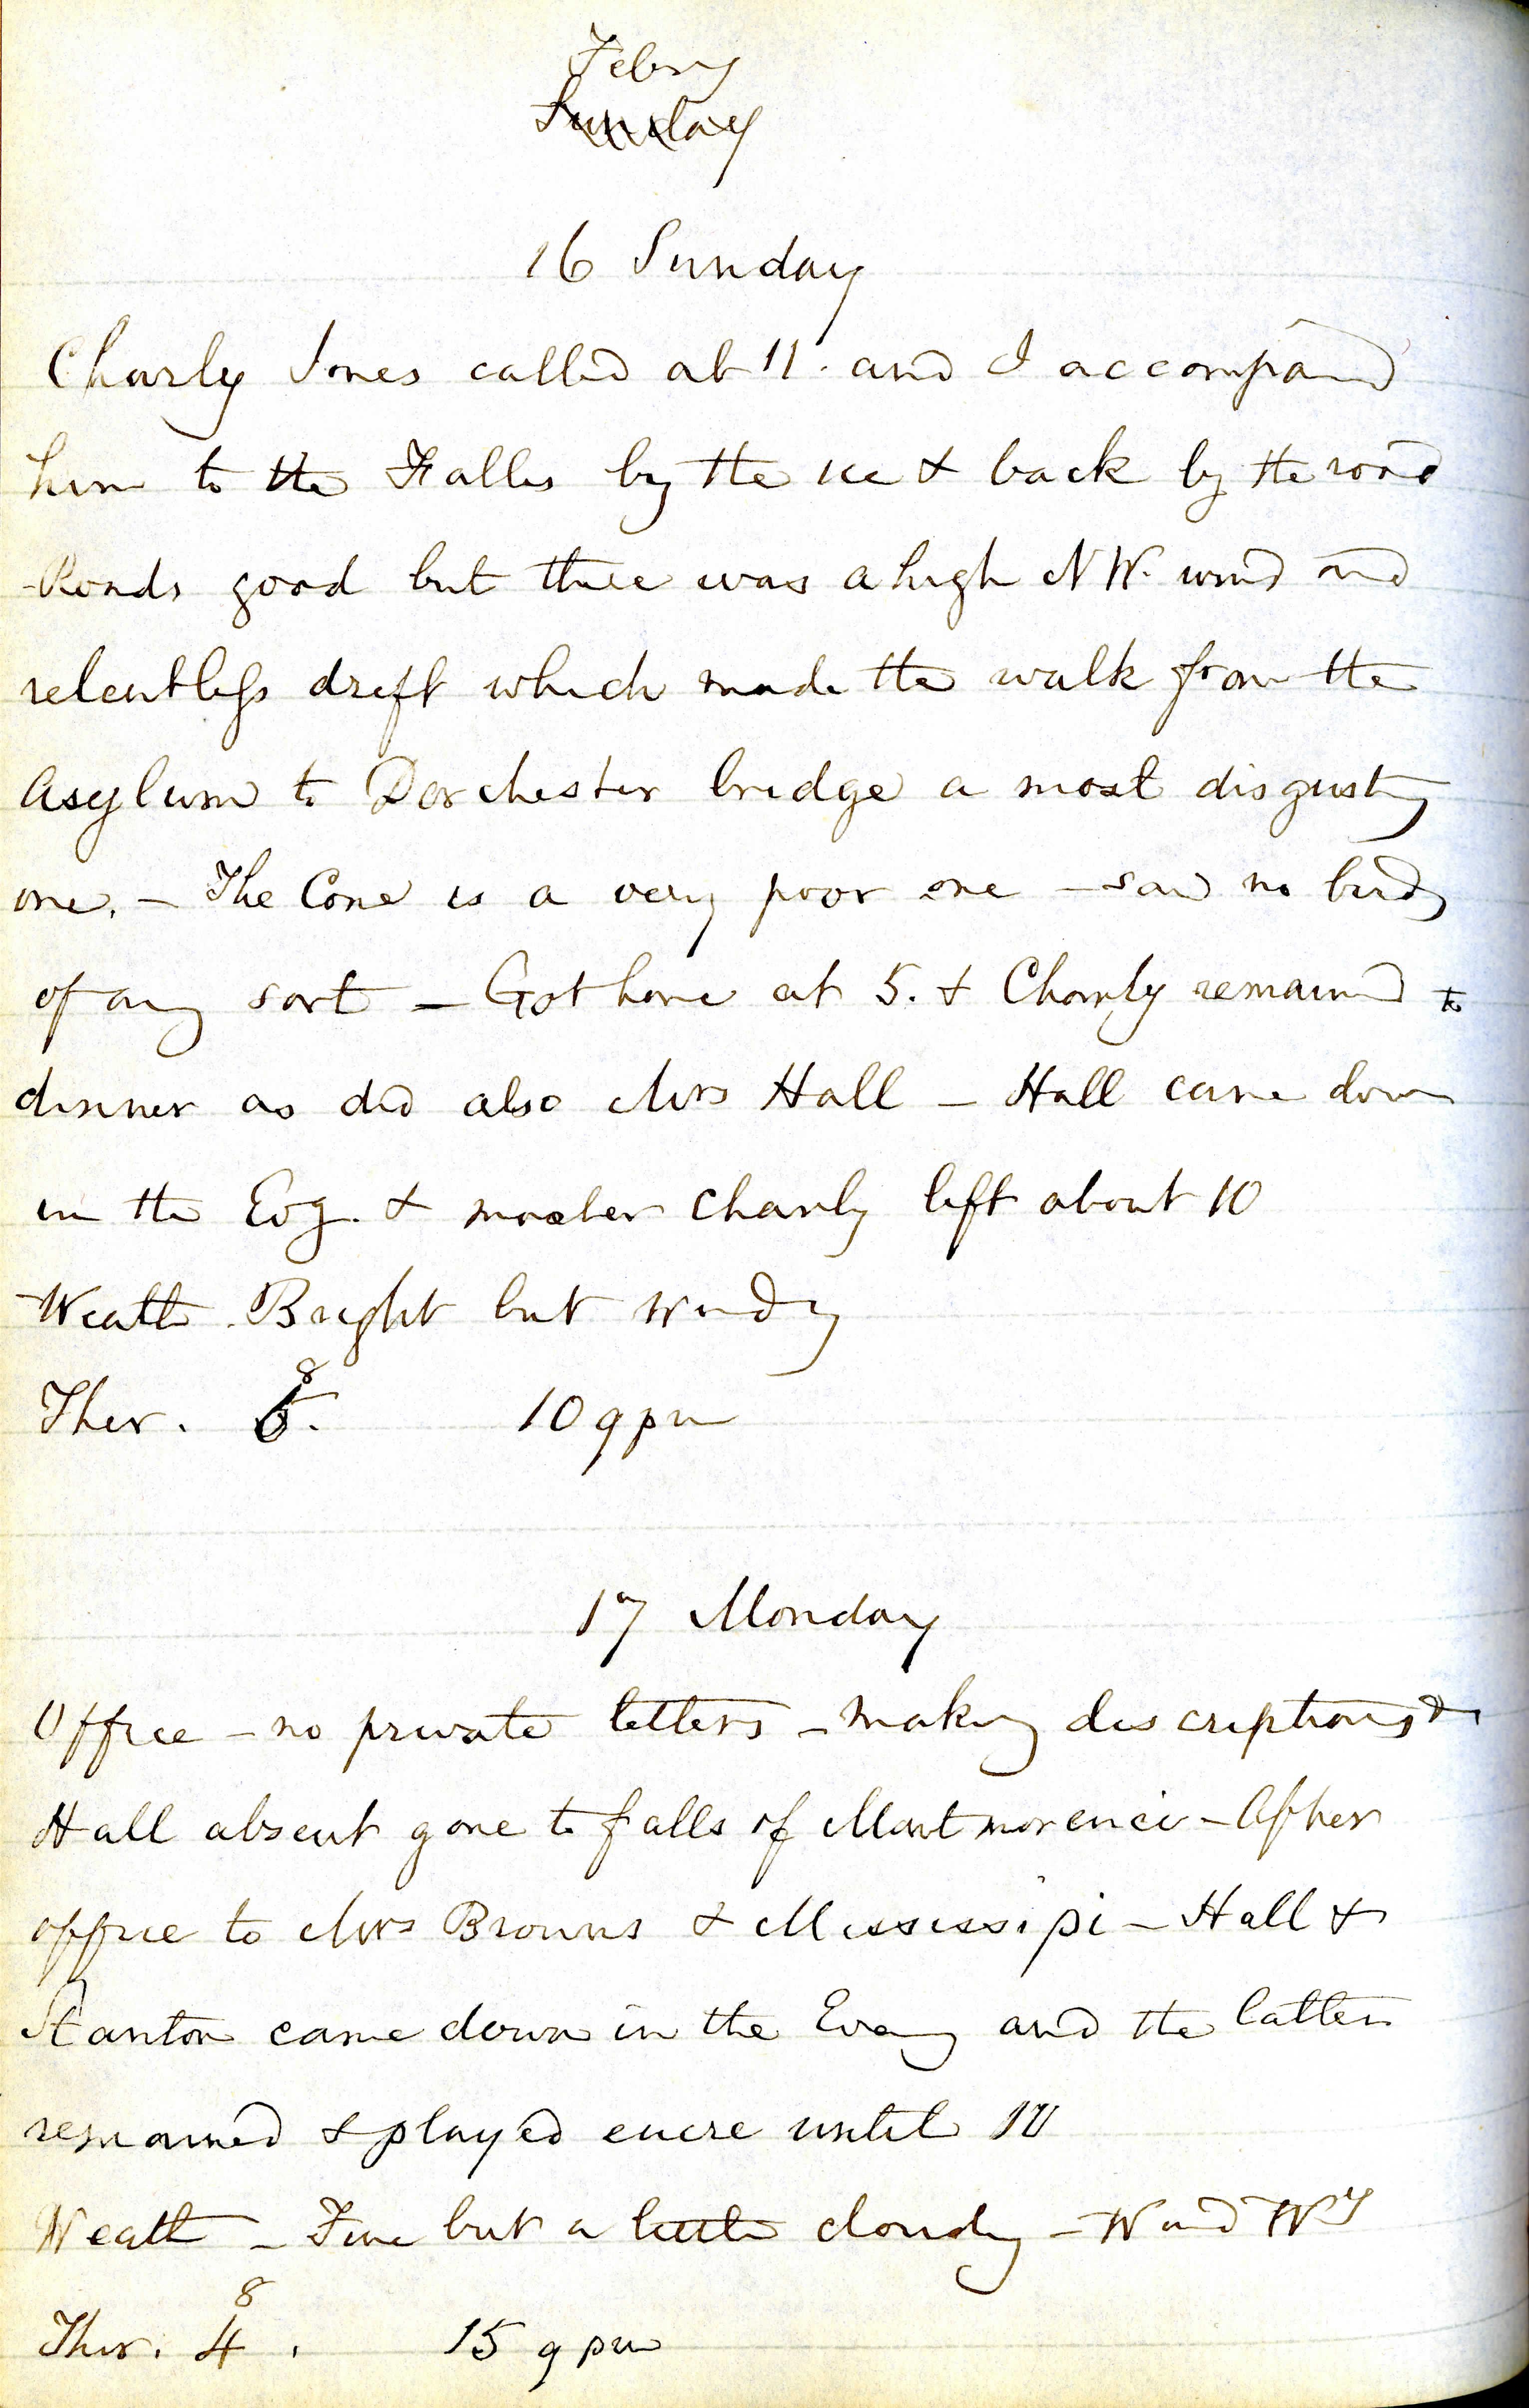 Febry
Sunday
16 Sunday
Charly Jones called at 11. and I accompand
him to the Falls by the ice & back by the road
Roads good but there was a high NW. wind and
relentless drift which made the walk from the
Asylum to Dorchester bridge a most disgusting
one. - The Cone is a very poor one - saw no birds
of any sort - Got home at 5. & Charly remained to
dinner as did also Mrs Hall - Hall came down
in the Evg. & master Charly left about 10
Weath. Bright but windy
8
Ther. 6. 10 9 pm
17 Monday
Office - no private letters - making descriptions &
Hall absent gone to falls of Montmorenci - After
office to Mrs Browns & Mississipi - Hall &
Stanton came down in the Eveng and the latter
remained & played eucre until 10
Weath - Fine but a little cloudy - Wind Wy
8
Ther. 4. 15 9 pm